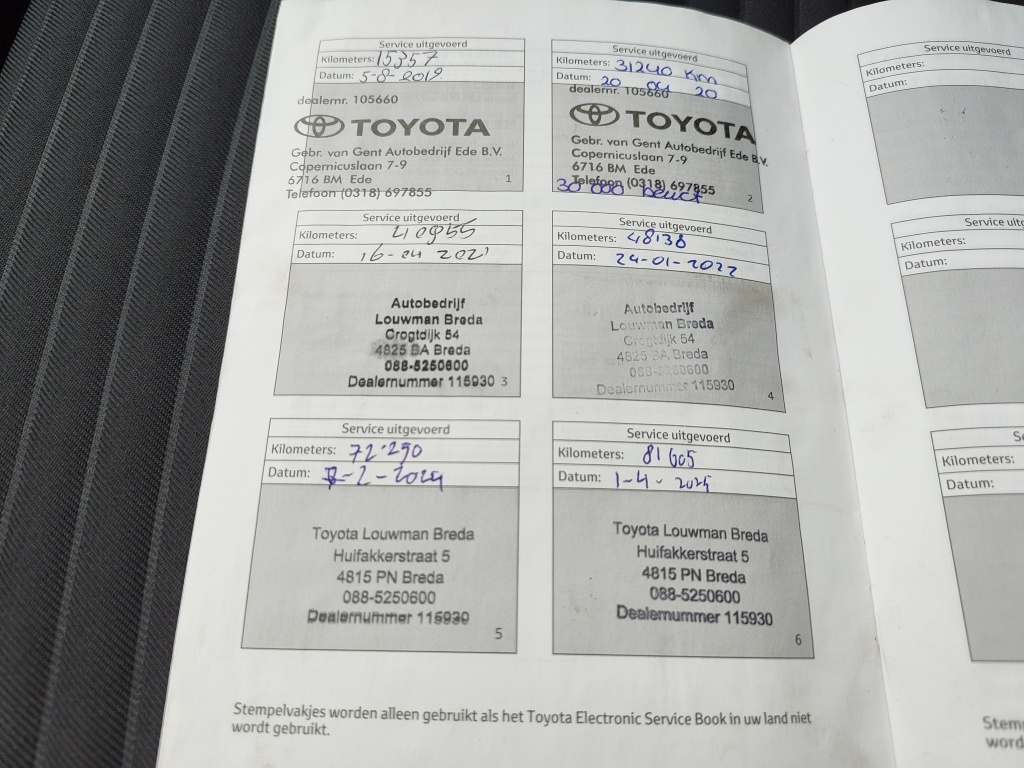 Service uitgevoerd
Kilometers: 15357
Datum: 5-8-2019
dealernr. 105660
TOYOTA
Gebr. van Gent Autobedrijf Ede B.V.
Copernicuslaan 7-9
6716 BM Ede
Telefoon (0318) 697855
1
Service uitgevoerd
Kilometers: 31240 Km
Datum: 20 04 20
dealernr. 105660
TOYOTA
Gebr. van Gent Autobedrijf Ede B.V.
Copernicuslaan 7-9
6716 BM Ede
Telefoon (0318) 697855
30 000 beurt
2
Service uitgevoerd
Kilometers: 40955
Datum: 16-04 2021
Autobedrijf
Louwman Breda
Crogtdijk 54
4825 BA Breda
088-5250600
Dealernummer 115930 3
Service uitgevoerd
Kilometers: 48138
Datum: 24-01-2022
Autobedrijf
Louwman Breda
Crogtdijk 54
4825 BA Breda
088-5250600
Dealernummer 115930
4
Service uitgevoerd
Kilometers: 72.290
Datum: 7-2-2024
Toyota Louwman Breda
Huifakkerstraat 5
4815 PN Breda
088-5250600
Dealernummer 115930
5
Service uitgevoerd
Kilometers: 81605
Datum: 1-4-2025
Toyota Louwman Breda
Huifakkerstraat 5
4815 PN Breda
088-5250600
Dealernummer 115930
6
Stempelvakjes worden alleen gebruikt als het Toyota Electronic Service Book in uw land niet
wordt gebruikt.
Service uitgevoerd
Kilometers:
Datum:
Service uitg
Kilometers:
Datum:
Se
Kilometers:
Datum:
Stem
word